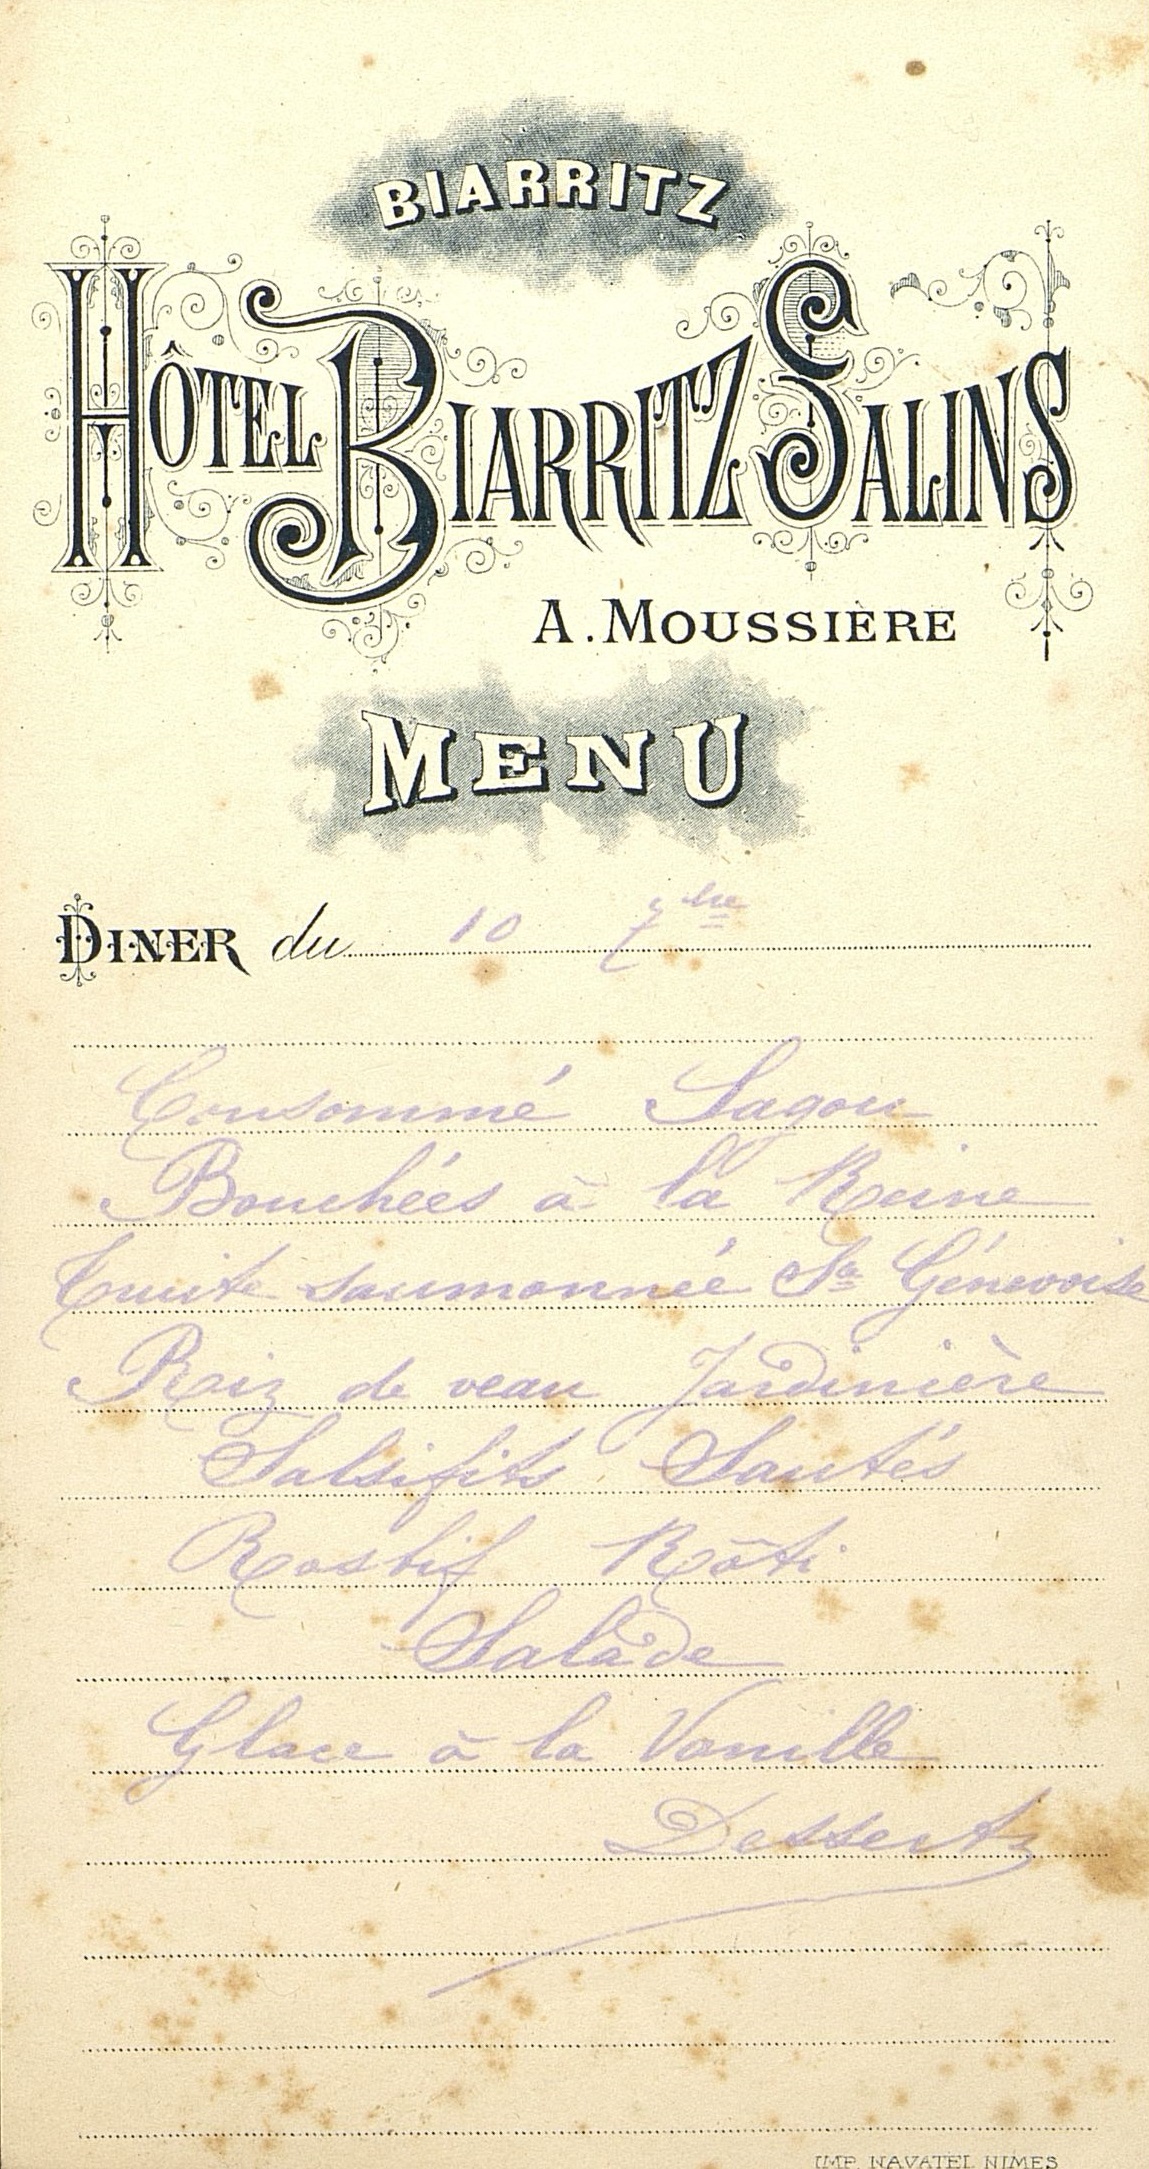 BIARRITZ
HÔTEL BIARRITZ SALINS
A. MOUSSIÈRE
MENU
DINER du 10 7bre
Consommé Sagou
Bouchées à la Reine
Truite saumonnée Sce Génevoise
Roiz de veau Jardinière
Salsifits Sautés
Rosbif Rôti
Salade
Glace à la Vanille
Desserts
IMP. NAVATEL NIMES